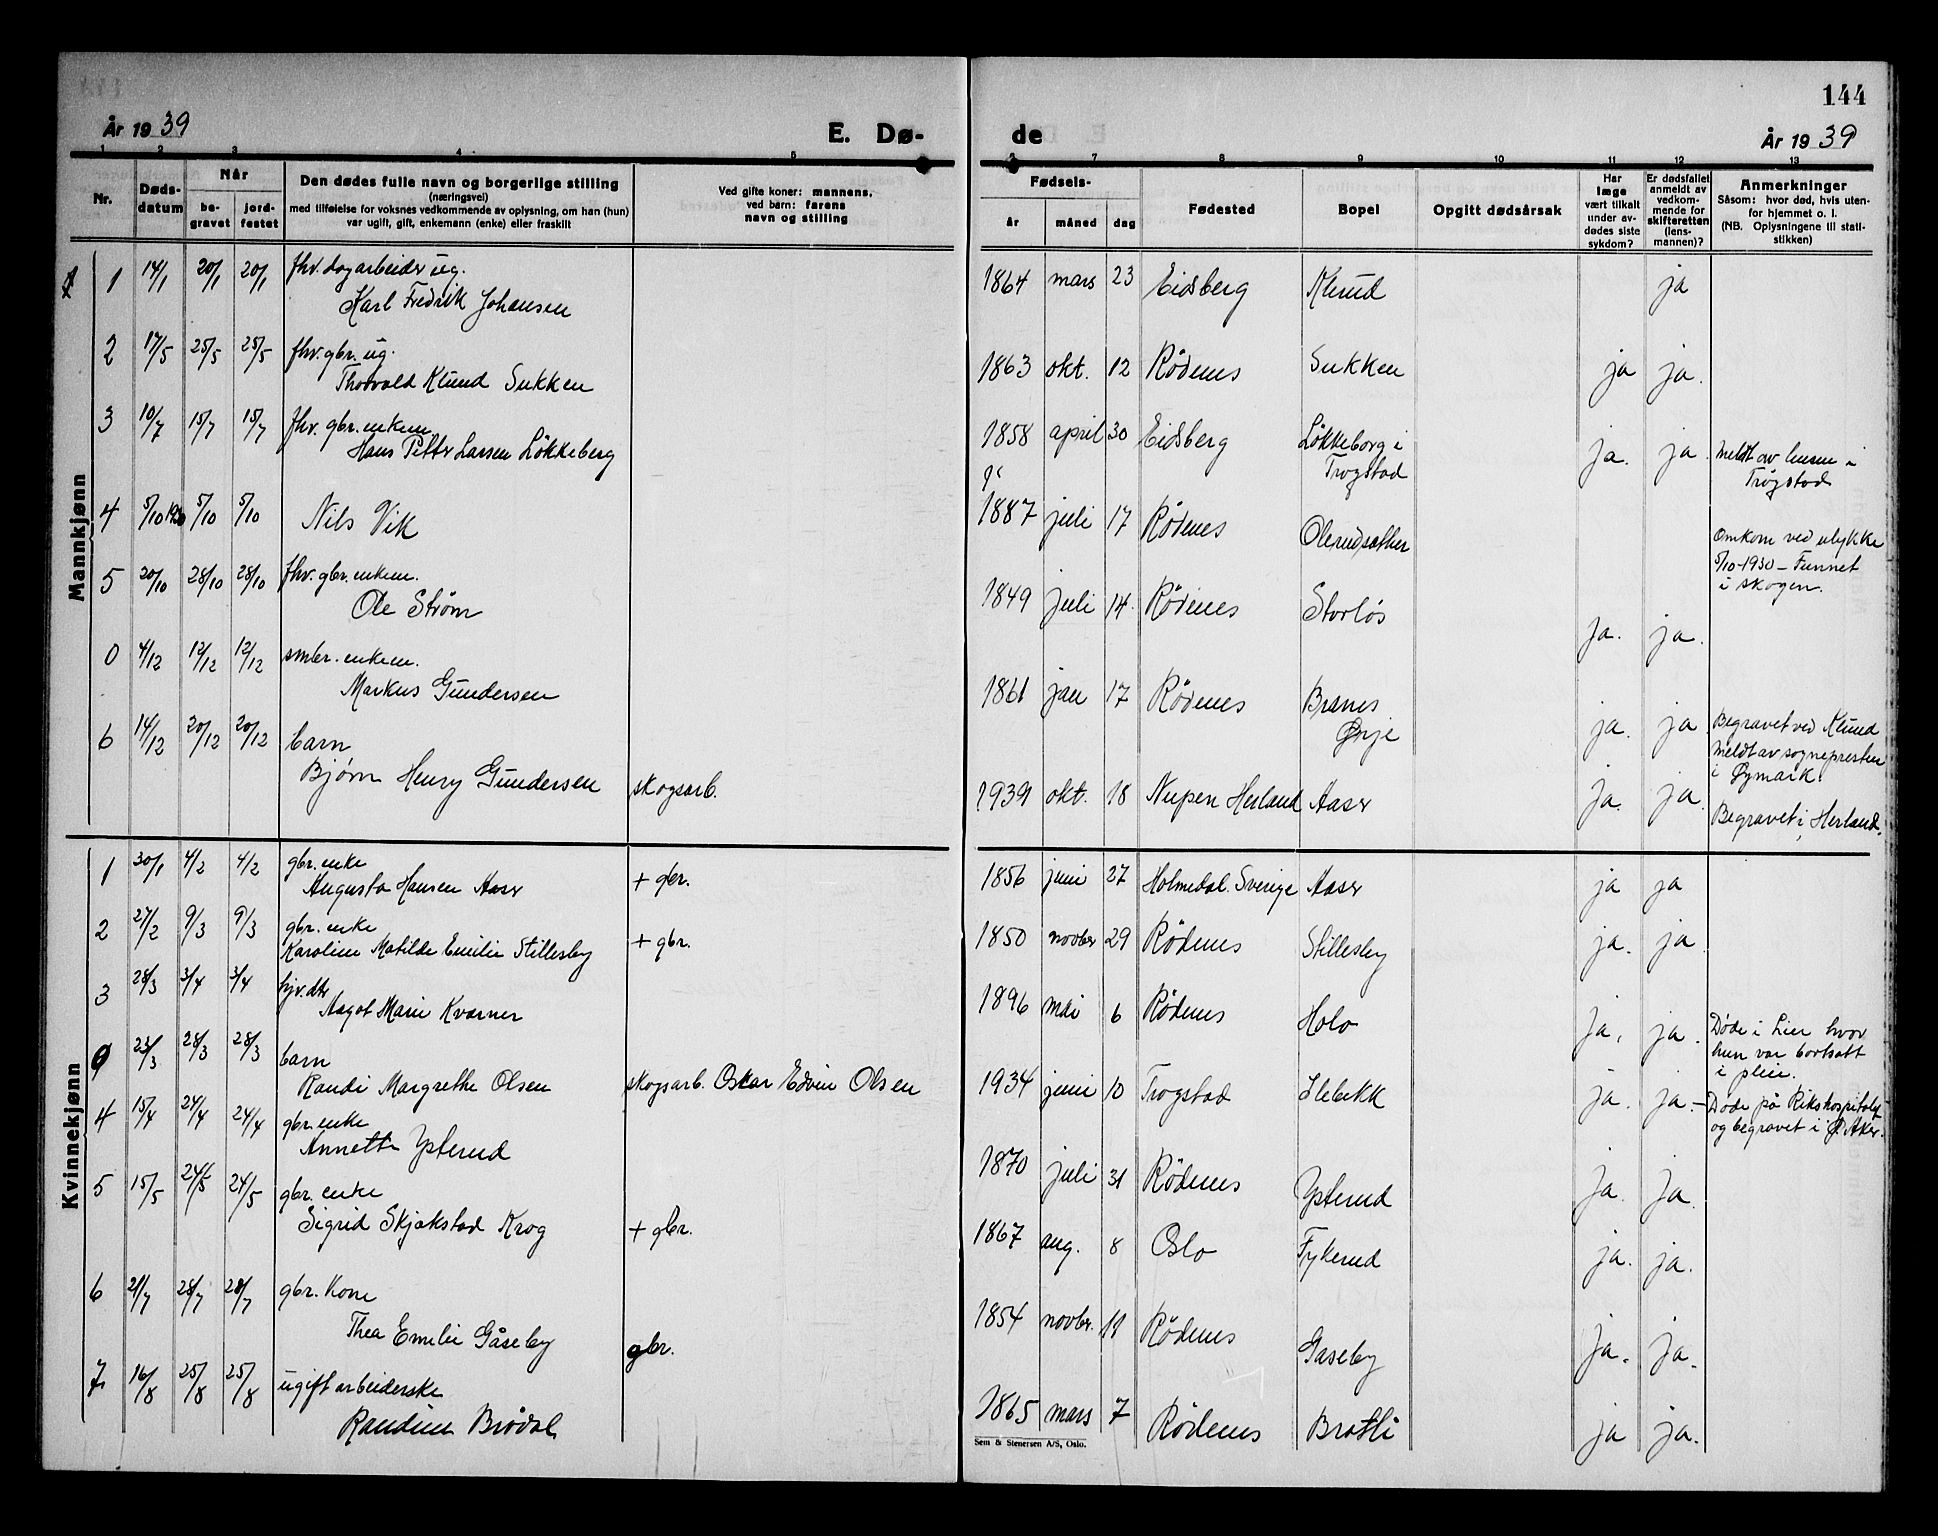 144
År 1939
E. Dø-
de
År 1939
1 2 3 4 5
6 7 8 9 10 11 12 13
Nr.
Døds-
datum
Når
be-
gravet
jord-
festet
Den dødes fulle navn og borgerlige stilling
(næringsvei)
med tilføielse for voksnes vedkommende av oplysning, om han (hun)
var ugift, gift, enkemann (enke) eller fraskilt
Ved gifte koner: mannens,
ved barn: farens
navn og stilling
Fødsels-
år
måned
dag
Fødested
Bopel
Opgitt dødsårsak
Har
læge
vært tilkalt
under av-
dødes siste
sykdom?
Er dødsfallet
anmeldt av
vedkom-
mende for
skifteretten
(lens-
mannen)?
Anmerkninger
Såsom: hvor død, hvis uten-
for hjemmet o. l.
(NB. Oplysningene til stati-
stikken)
Mannkjønn
1 14/1 20/1 20/1 fhv. dagarbeider ug.
Karl Fredrik Johansen
1864 mars 23 Eidsberg Klund ja
2 17/5 25/5 25/5 fhv. gbr. ug.
Thorvald Klund Sukken
1863 okt. 12 Rödenes Sukken ja ja.
3 10/7 15/7 15/7 fhv. gbr. enkem
Hans Petter Larsen Lökkeberg
1858 april 30 Eidsberg Lökkeborg i
Trøgstad
ja. ja
meldt av lensm i
Trøgstad
4 5/10 1930 5/10 5/10
Nils Vik
1887 juli 17 Rødenes Olerudsæther
Omkom ved ulykke
5/10-1930 – Funnet
i skogen.
5 20/10 28/10 28/10 fhv. gbr. enkem.
Ole Strøm
1849 juli 14. Rödenes Storløs
ja. ja.
0 4/12 12/12 12/12 smbr. enkem.
Markus Gundersen
1861 jan 17 Rødenes Branes
Ørje
ja. ja.
Begravet ved Klund
meldt av sognepresten
i Øymark.
6 14/12 20/12 20/12 barn
Bjørn Henry Gundersen skogsarb.
1939 okt. 18 Nupen Herland Aaser ja. ja.
Begravet i Herland.
Kvinnekjønn
1 30/1 4/2 4/2 gbr. enke
Augusta Hansen Aaser + gbr.
1856 juni 27 Holmedal. Sverige Aaser ja ja
2 27/2 9/3 9/3 gbr. enke
Karoline Matilde Emilie Stillesby + gbr.
1850 novbr 29 Rödenes Stillesby ja. ja
3 28/3 3/4 3/4 hjv. dtr
Aagot Marie Kværner
1896 mai 6 Rödenes Holo ja, ja.
Døde i Lier hvor
hun var bortsatt
i pleie.
0 23/3 28/3 28/3 barn
Randi Margrethe Olsen skogsarb. Oskar Edvin Olsen
1934 juni 10 Trøgstad Ilebekk ja. ja. –
Døde på Rikshospitalet
og begravet i Ø. Aker.
4 15/4 24/4 24/4 gbr. enke
Annette Ysterud
1870 juli 31 Rödenes Ysterud ja. ja.
5 15/5 24/5 24/5 gbr. enke
Sigrid Skjakstad Krog + gbr.
1867 aug. 8 Oslo Fykerud ja. ja.
6 21/7 28/7 28/7 gbr. kone
Thea Emilie Gåseby gbr.
1854 novbr. 11 Rödenes Gaseby ja. ja.
7 16/8 25/8 25/8 ugift arbeiderske
Randine Brødal
1865 mars 7 Rödenes Bratli ja ja.
Sem & Stenersen A/S, Oslo.